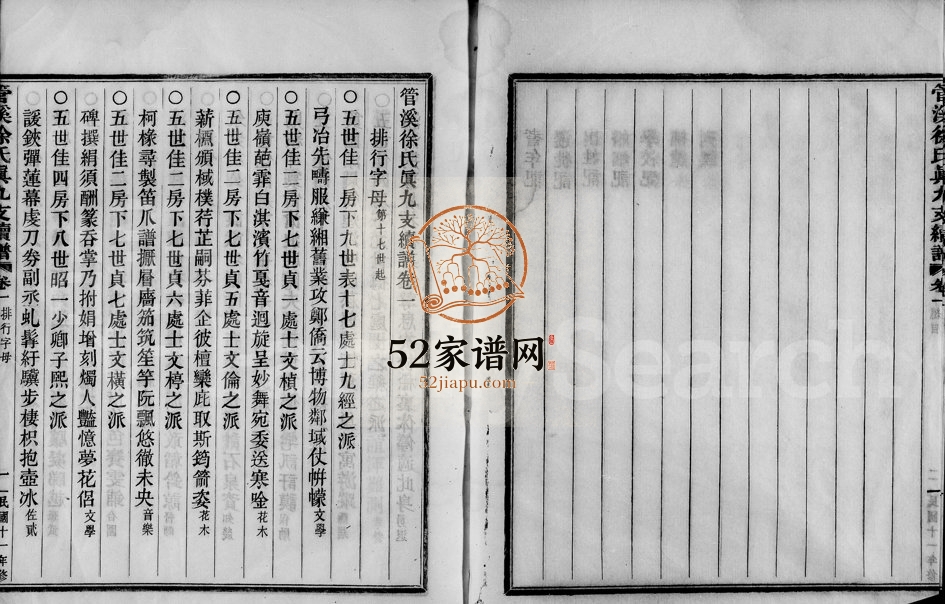 管溪徐氏眞九支續譜卷一
排行字母第十七世起
○五世佳一房下九世表十七處士九經之派
弓冶先疇服縑緗舊業攻鄭僑云博物鄰域仗帡幪文學
○五世佳二房下七世貞一處士文楨之派
庾嶺葩霏白淇濱竹戛音迴旋呈妙舞宛委送寒唫花木
○五世佳二房下七世貞五處士文倫之派
薪槱頒棫樸荇芷嗣芬菲企彼檀欒庇取斯筠箭姿花木
○五世佳二房下七世貞六處士文楟之派
柯椽尋製笛爪譜擫層牆笳筑笙竽阮飄悠徹未央音樂
○五世佳二房下七世貞七處士文橫之派
碑撰絹須酬篆吞掌乃拊娟增刻燭人豔憶夢花侶文學
○五世佳四房下八世昭一少卿子熙之派
諼鋏彈蓮幕虔刀劵副丞虬髯紆驥步棲枳抱壺冰佐貳
管溪徐氏眞九支續譜
卷一
排行字母
一
民國十一年修
管溪徐氏眞九支續譜
卷一
總目
二
民國十一年修
52家谱网
52jiapu.com
Search